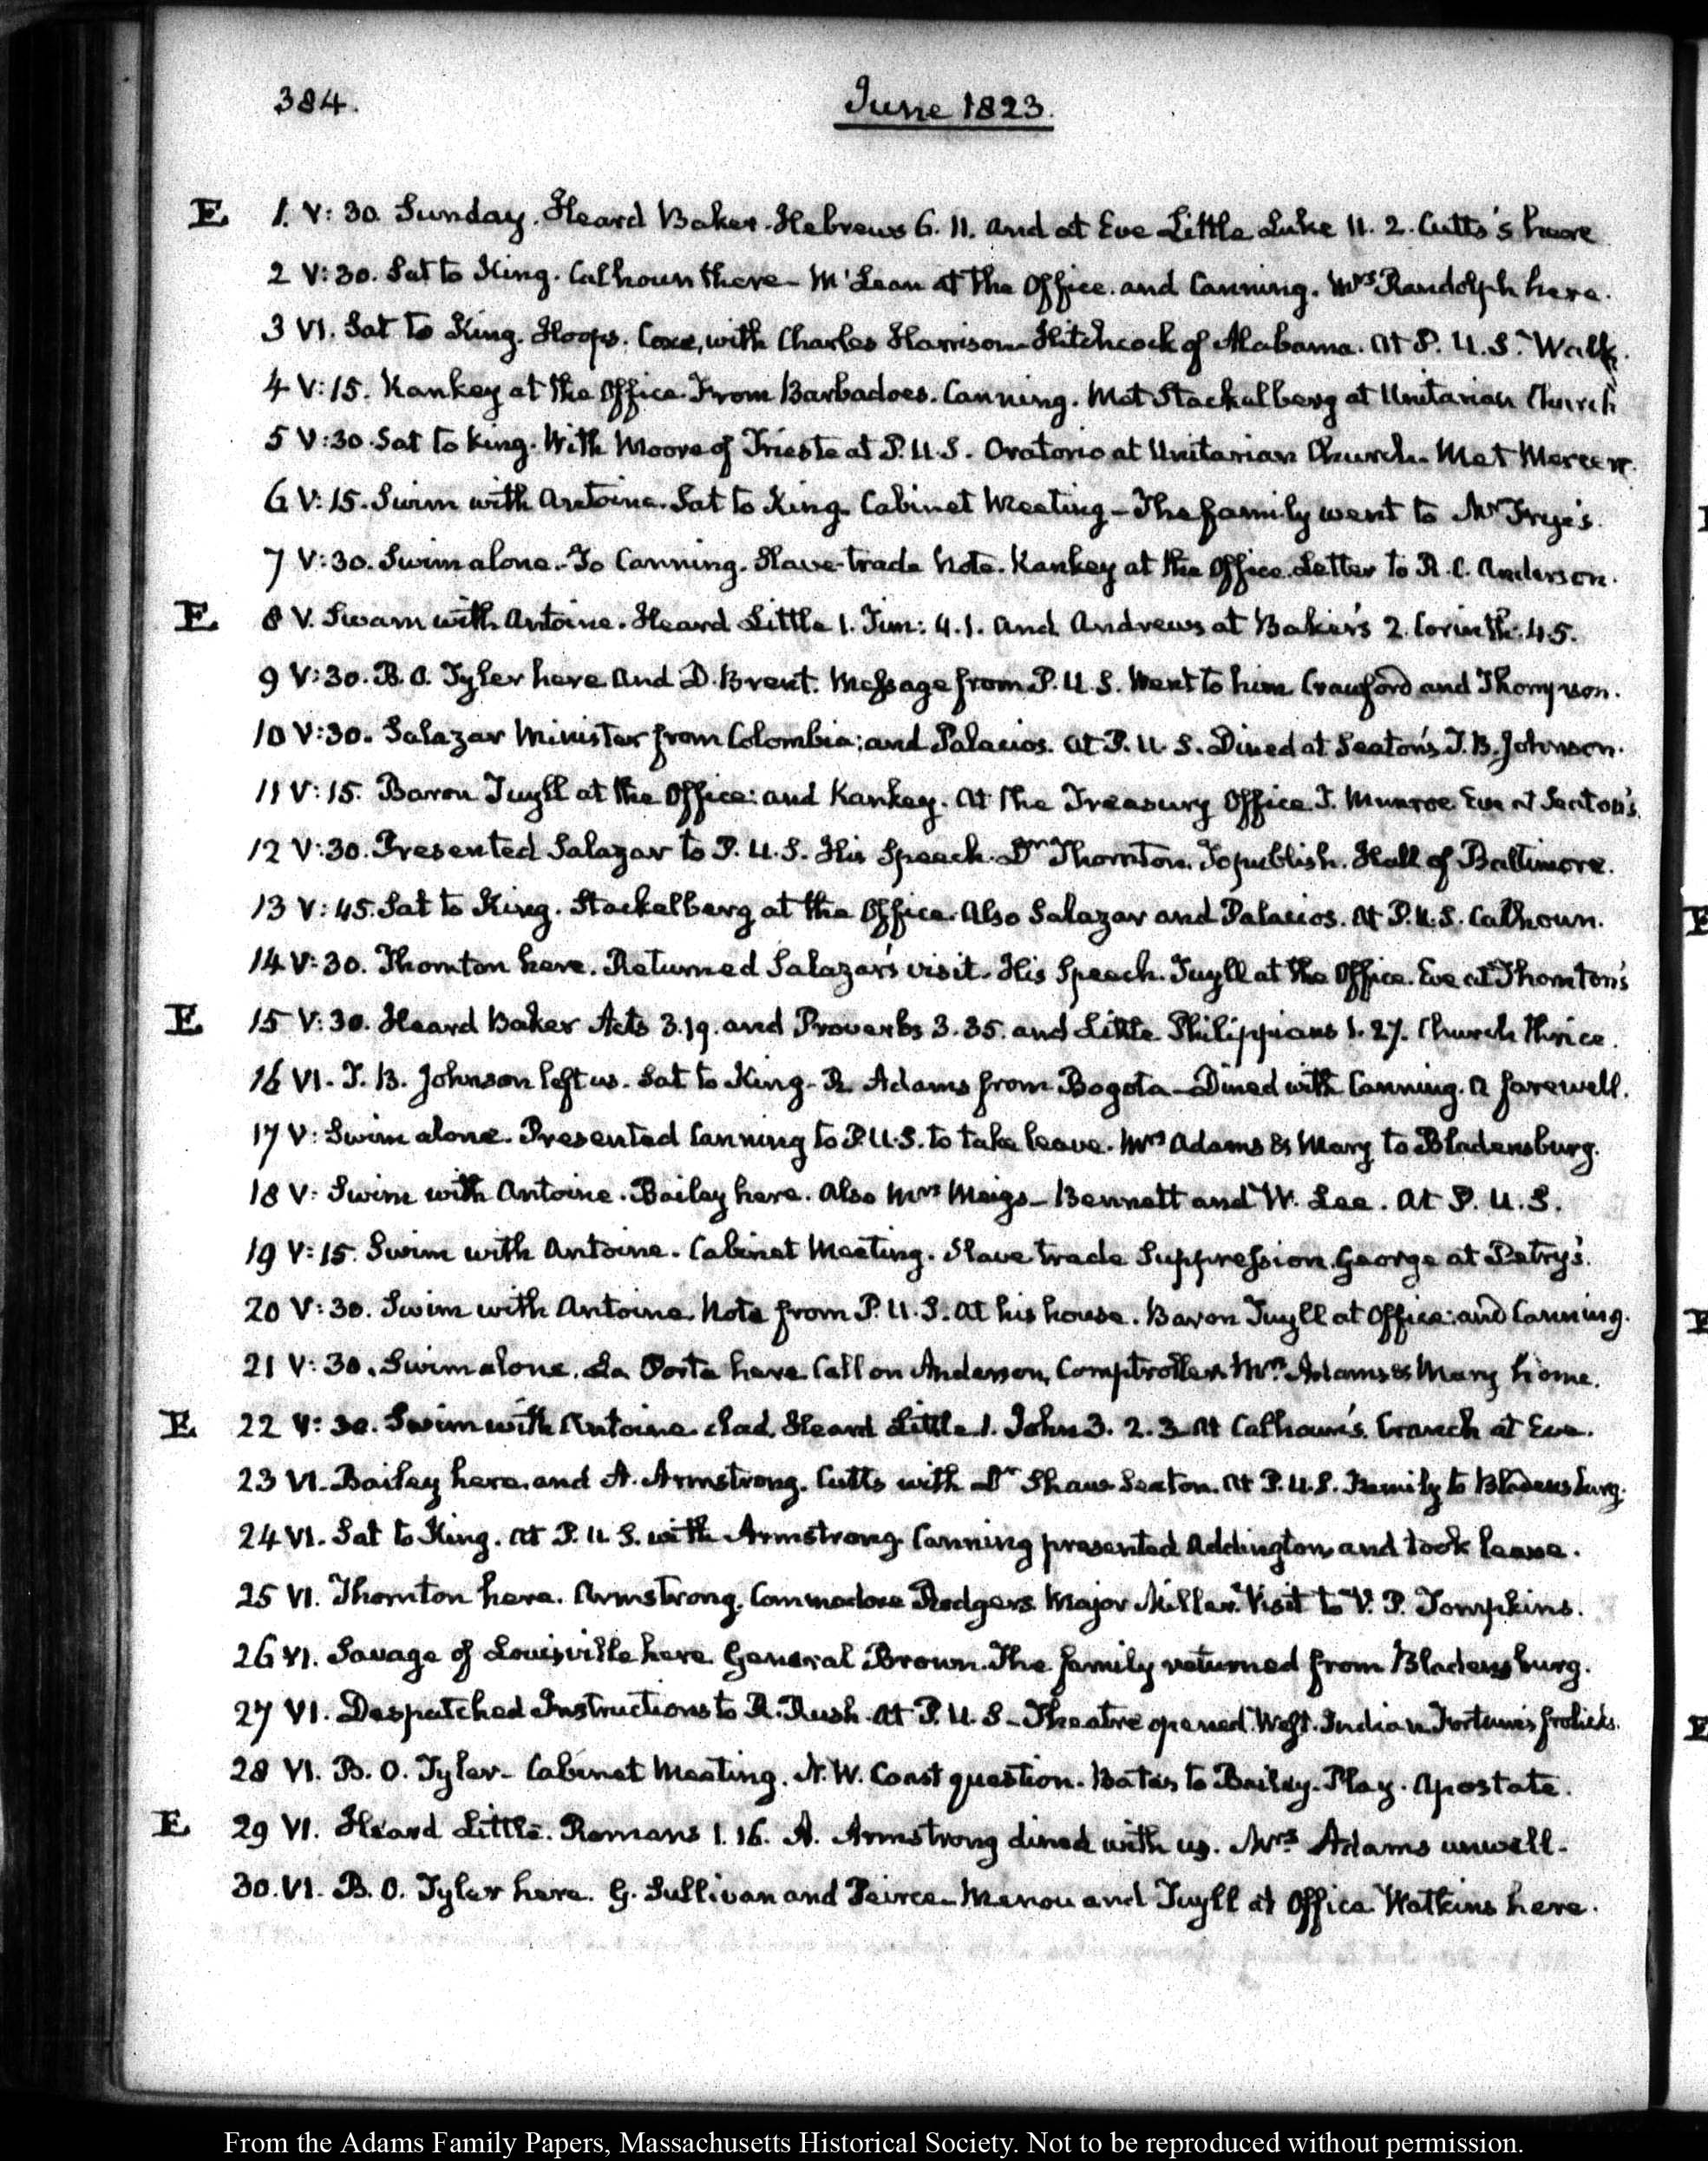 384.
June 1823.
E 1. V: 30. Sunday. Heard Baker. Hebrews 6. 11. and at Eve Little Luke 11. 2. Cutts's here
2 V:30. Sat to King. Calhoun there - McLean at the Office. and Canning. Mrs Randolph here.
3 VI. Sat to King. Hoops. Coxe, with Charles Harrison - Hitchcock of Alabama. at P. U.S. Walk.
4 V:15. Kankey at the Office. From Barbadoes. Canning. Met Stackelberg at Unitarian Church
5 V:30. Sat to King. With Moore of Trieste at P.U.S. Oratorio at Unitarian Church. Met Mercer.
6 V:15. Swim with Antoine. Sat to King. Cabinet Meeting - The family went to Mr Frye's.
7 V:30. Swim alone. To Canning. Slave-trade Note. Kankey at the Office. Letter to R. C. Anderson.
E 8 V. Swam with Antoine. Heard Little 1. Tim: 4.1. and Andrews at Baker's 2. Corinth: 4.5.
9 V:30. B. O. Tyler here and D. Brent. Message from P.U.S. Went to him Crawford and Thompson.
10 V:30. Salazar Minister from Colombia; and Palacios. at P. U. S. Dined at Seaton's. T. B. Johnson.
11 V:15. Baron Tuyll at the Office: and Kankey. at the Treasury Office T. Munroe Eve at Seaton's.
12 V:30. Presented Salazar to P.U.S. His Speech. Dr Thornton. To publish. Hall of Baltimore.
13 V:45. Sat to King. Stackelberg at the Office. Also Salazar and Palacios. At P.U.S. Calhoun.
14 V:30. Thornton here. Returned Salazar's visit. His Speech. Tuyll at the Office. Eve at Thornton's
E 15 V:30. Heard Baker Acts 3.19. and Proverbs 3.35. and Little Philippians 1. 27. Church thrice.
16 VI. T. B. Johnson left us. Sat to King. R. Adams from Bogota - Dined with Canning. a farewell.
17 V: Swim alone. Presented Canning to P.U.S. to take leave. Mrs Adams & Mary to Bladensburg.
18 V: Swim with Antoine. Bailey here. Also Mrs Meigs - Bennett and W. Lee. At P. U. S.
19 V:15. Swim with Antoine. Cabinet Meeting. Slave trade Suppression. George at Petry's.
20 V:30. Swim with Antoine. Note from P.U.S. at his house. Baron Tuyll at Office: and Canning.
21 V:30. Swim alone. La Porta here. Call on Anderson, Comptroller. Mrs Adams & Mary home.
E 22 V:30. Swim with Antoine. clad. Heard Little 1. John 3. 2.3. At Calhoun's. Cranch at Eve.
23 VI. Bailey here, and A. Armstrong. Cutts with Dr Shaw. Seaton. At P.U.S. Family to Bladensburg.
24 VI. Sat to King. at P. U. S. with Armstrong. Canning presented Addington and took leave.
25 VI. Thornton here. Armstrong. Commodore Rodgers. Major Miller. Visit to V. P. Tompkins.
26 VI. Savage of Louisville here. General Brown. The family returned from Bladensburg.
27 VI. Despatched Instructions to R. Rush. At P. U. S. - Theatre opened. West. Indian Fortune's frolicks.
28 VI. B. O. Tyler - Cabinet Meeting. N. W. Coast question. Bates to Bailey. Play. Apostate.
E 29 VI. Heard Little. Romans 1. 16. A. Armstrong dined with us. Mrs Adams unwell.
30. VI. B. O. Tyler here. G. Sullivan and Peirce - Menou and Tuyll at Office Watkins here.
From the Adams Family Papers, Massachusetts Historical Society. Not to be reproduced without permission.